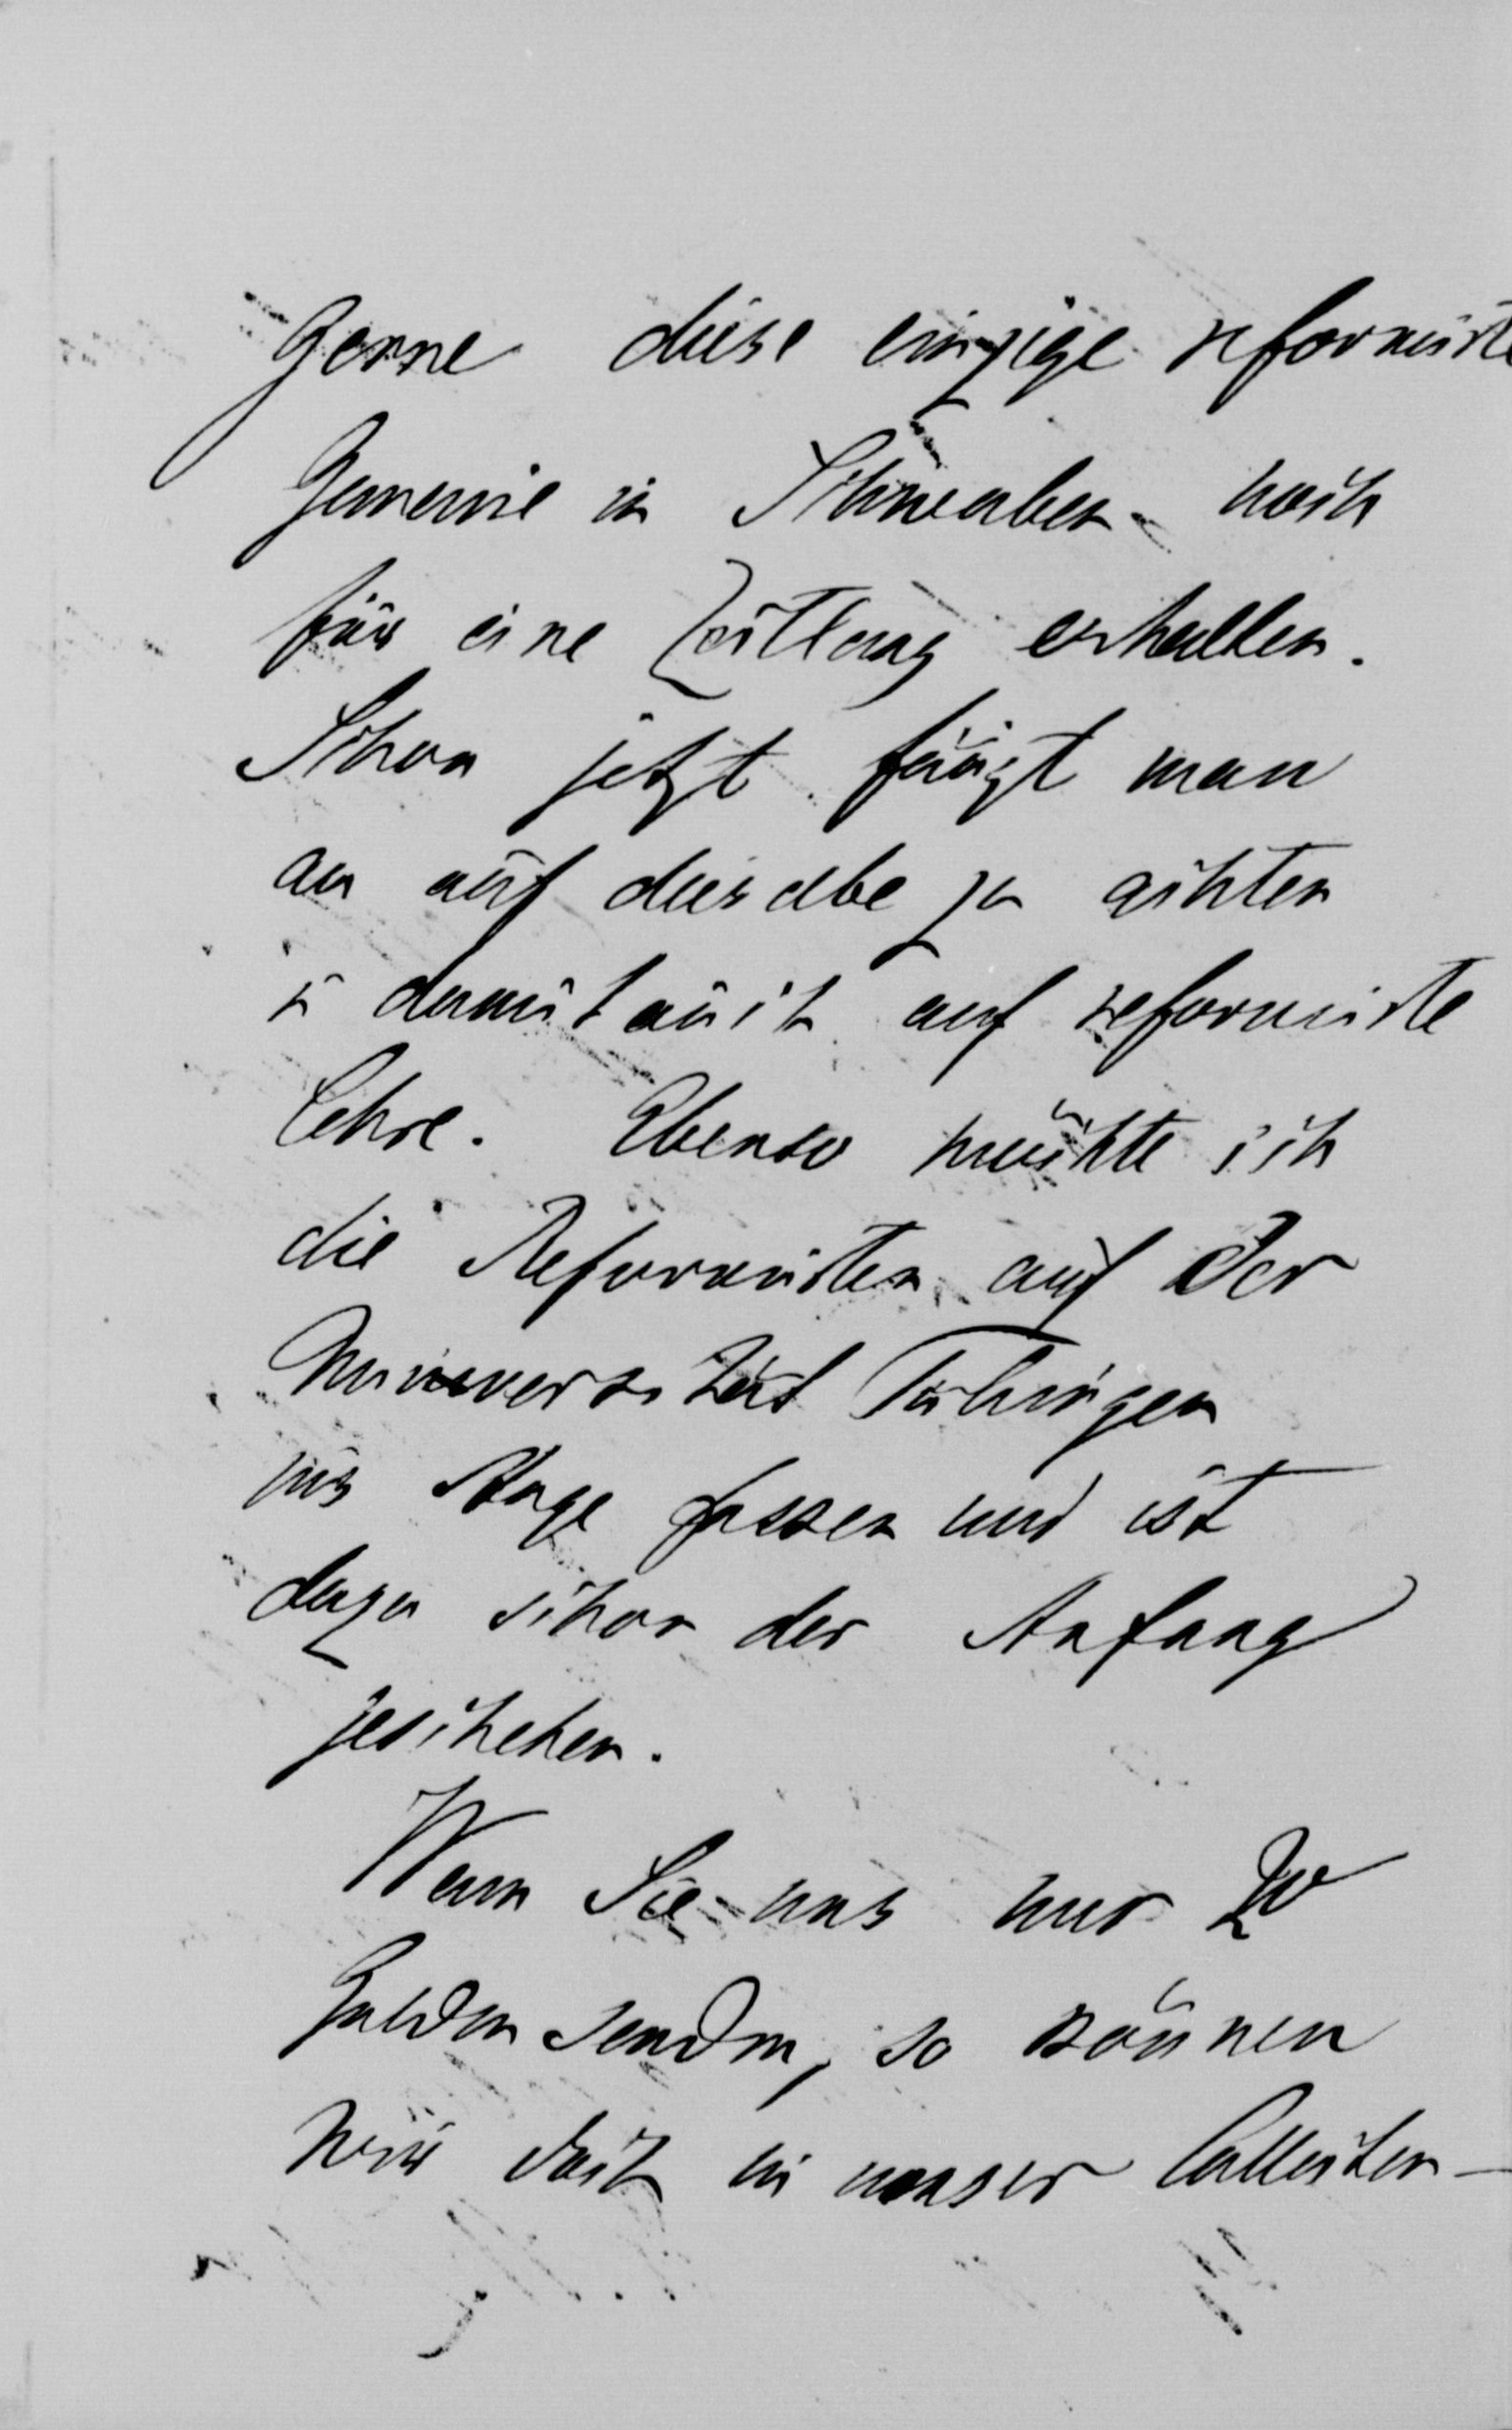 Gerne diese einzige reformirte
Gemeine in Schwaben noch
für eine Zeitlang erhalten.
Schon jetzt fängt man
an auf dieselbe zu achten
u damit auch auf reformirte
Lehre. Ebenso möchte ich
die Reformirten auf der
Universität Tübingen
ins Auge fassen und ist
dazu schon der Anfang
geschehen.
Wenn Sie uns nur
Gulden senden, so können
wir doch in unser Collecten-